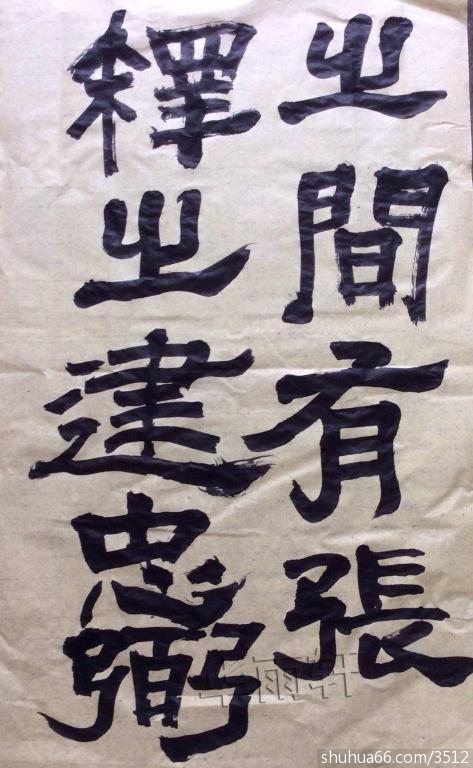 之間有張
釋之建忠弼
华雨轩
shuhua66.com/3512